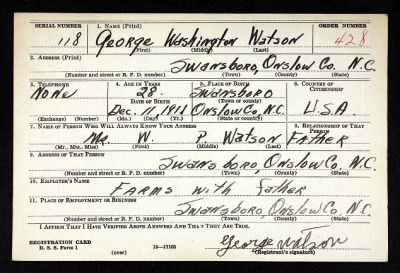 SERIAL NUMBER 1. NAME (Print) ORDER NUMBER
118 George Washington Watson 428
(First) (Middle) (Last)
2. ADDRESS (Print)
Swansboro, Onslow Co. N.C.
(Number and street or R. F. D. number) (Town) (County) (State)
3. TELEPHONE 4. AGE IN YEARS 5. PLACE OF BIRTH 6. COUNTRY OF CITIZENSHIP
None 28 Swansboro
DATE OF BIRTH (Town or county)
Dec. 11, 1911 Onslow Co., N.C. U.S.A.
(Exchange) (Number) (Mo.) (Day) (Yr.) (State or country)
7. NAME OF PERSON WHO WILL ALWAYS KNOW YOUR ADDRESS 8. RELATIONSHIP OF THAT PERSON
Mr. W. P. Watson Father
(Mr., Mrs., Miss) (First) (Middle) (Last)
9. ADDRESS OF THAT PERSON
Swansboro, Onslow Co. N.C.
(Number and street or R. F. D. number) (Town) (County) (State)
10. EMPLOYER'S NAME
Farms with Father
11. PLACE OF EMPLOYMENT OR BUSINESS
Swansboro, Onslow Co. N.C.
(Number and street or R. F. D. number) (Town) (County) (State)
I AFFIRM THAT I HAVE VERIFIED ABOVE ANSWERS AND THAT THEY ARE TRUE.
George Watson
REGISTRATION CARD
D. S. S. Form 1 (over) 16—17105 (Registrant's signature)